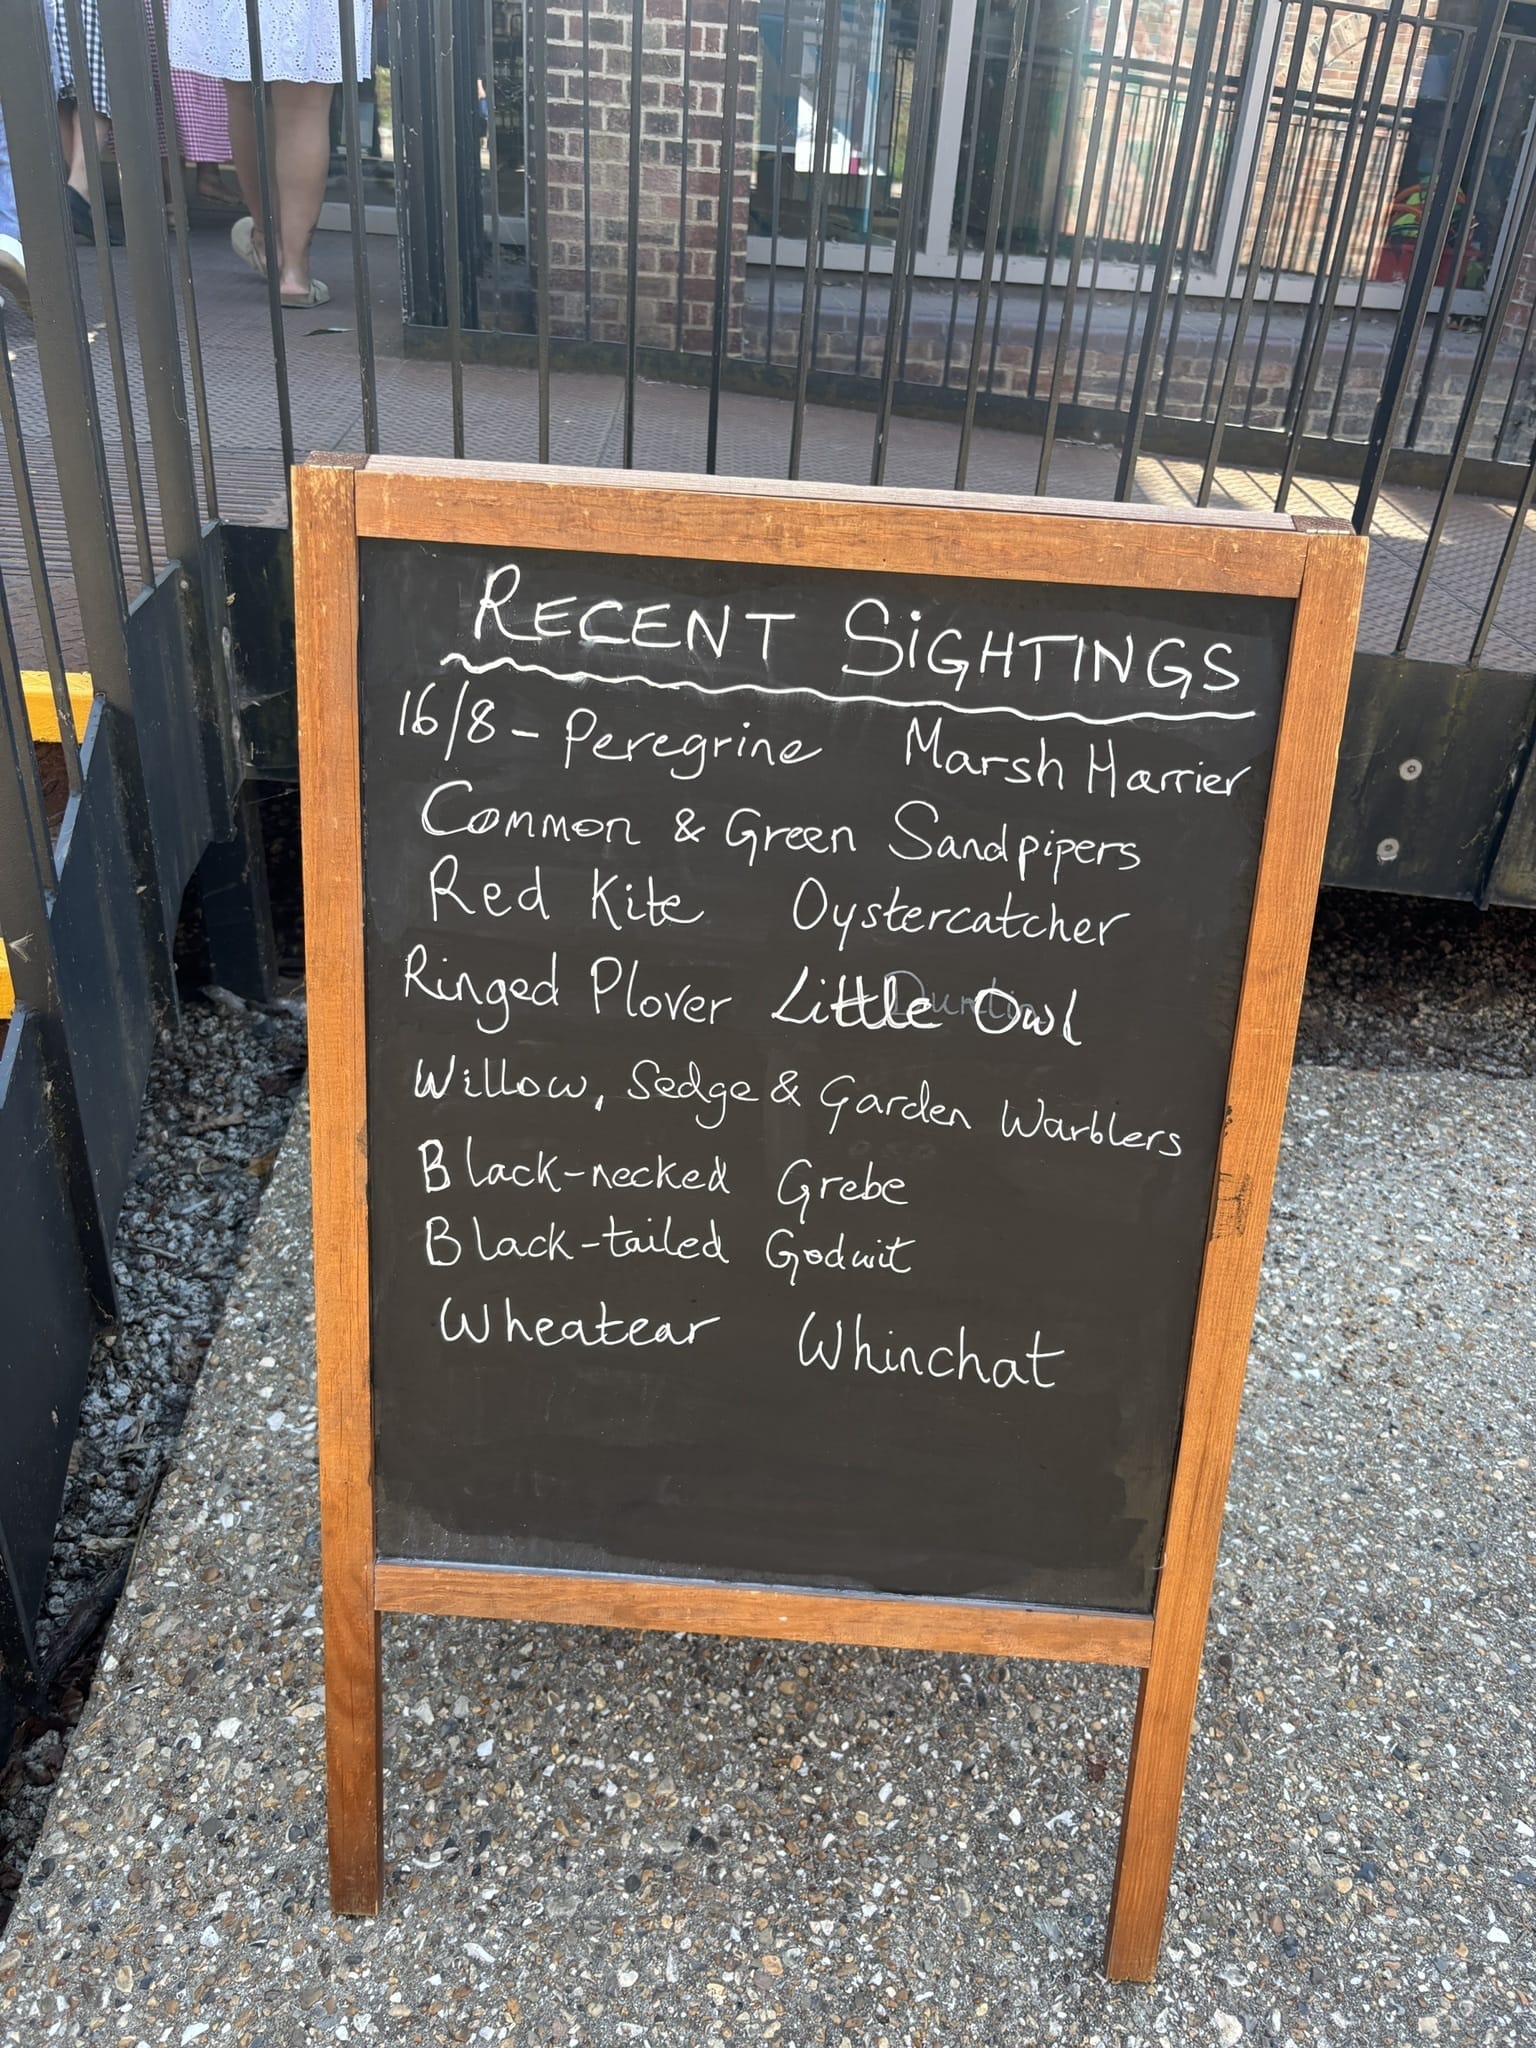 RECENT SIGHTINGS
16/8 - Peregrine Marsh Harrier
Common & Green Sandpipers
Red Kite Oystercatcher
Ringed Plover Little Owl
Willow, Sedge & Garden Warblers
Black-necked Grebe
Black-tailed Godwit
Wheatear Whinchat